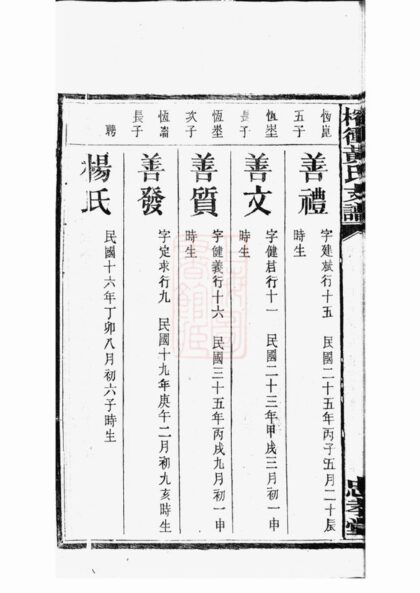 黃氏支譜
忠孝堂
恆崑
五子
善禮
字建猷行十五 民國二十五年丙子五月二十辰
時生
恆堃
長子
善文
字健君行十一 民國二十三年甲戌三月初一申
時生
恆堃
次子
善質
字健義行十六 民國三十五年丙戌九月初一申
時生
恆崙
長子
善發
字定求行九 民國十九年庚午二月初九亥時生
聘
楊氏
民國十六年丁卯八月初六子時生